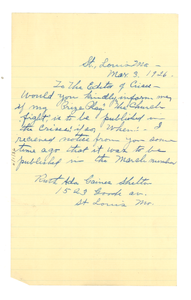 St. Louis Mo -
Mar. 3, 1926.
To The Editor of Crisis -
Would you kindly inform me
if my Prize Play "The Church
Fight" is to be published in
the Crisis; if so, When: - I
received notes from you some
time ago that it was to be
published in the March number
Ruth Ada Gaines Shelton
St Louis Mo.